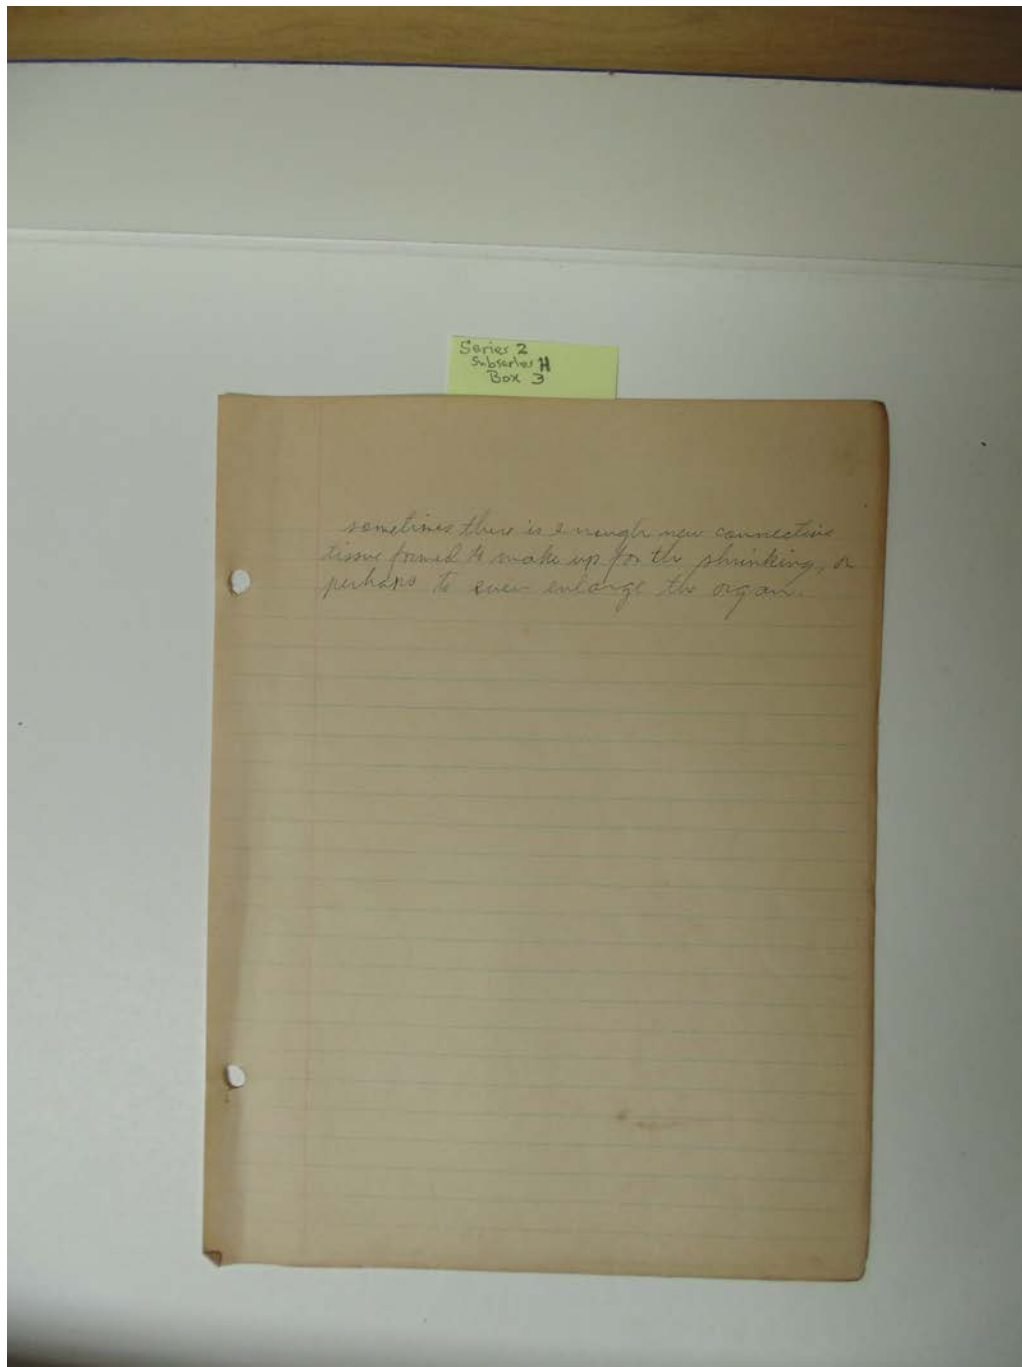 Series 2
Subseries H
Box 3
sometimes there is enough new connective
tissue formed to make up for the shrinking, or
perhaps to even enlarge the organ.